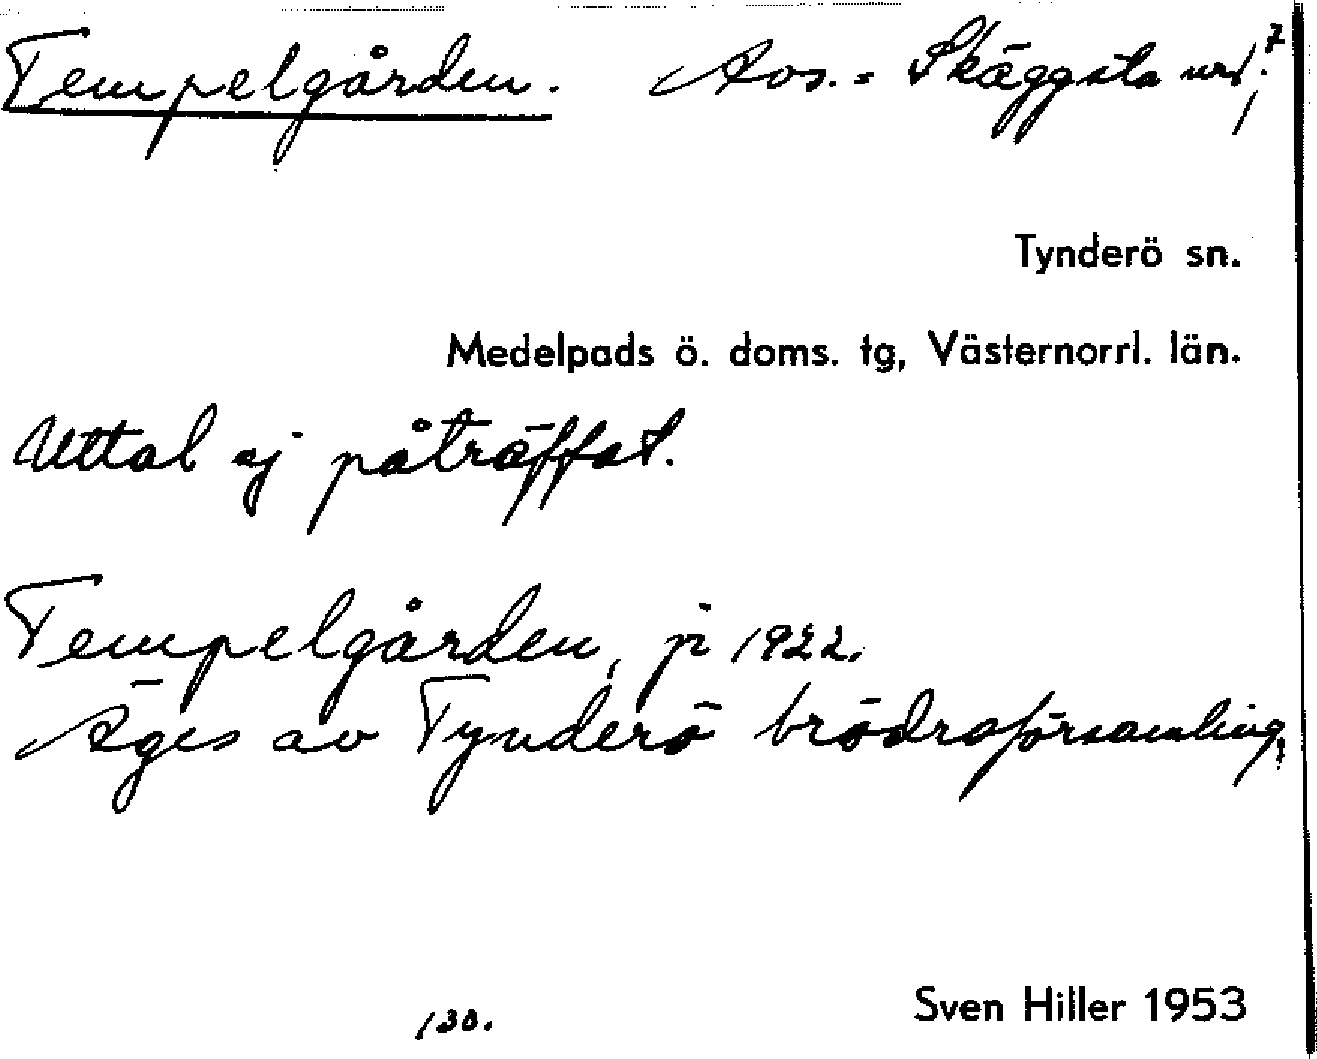 Tempelgården. Avs. = Skäggsta
Tynderö sn.
Medelpads ö. doms. tg, Västernorrl. län.
Uttal ej påträffat.
Tempelgården, ji 1922.
Äges av Tynderö brödraförsamling.
130.
Sven Hiller 1953